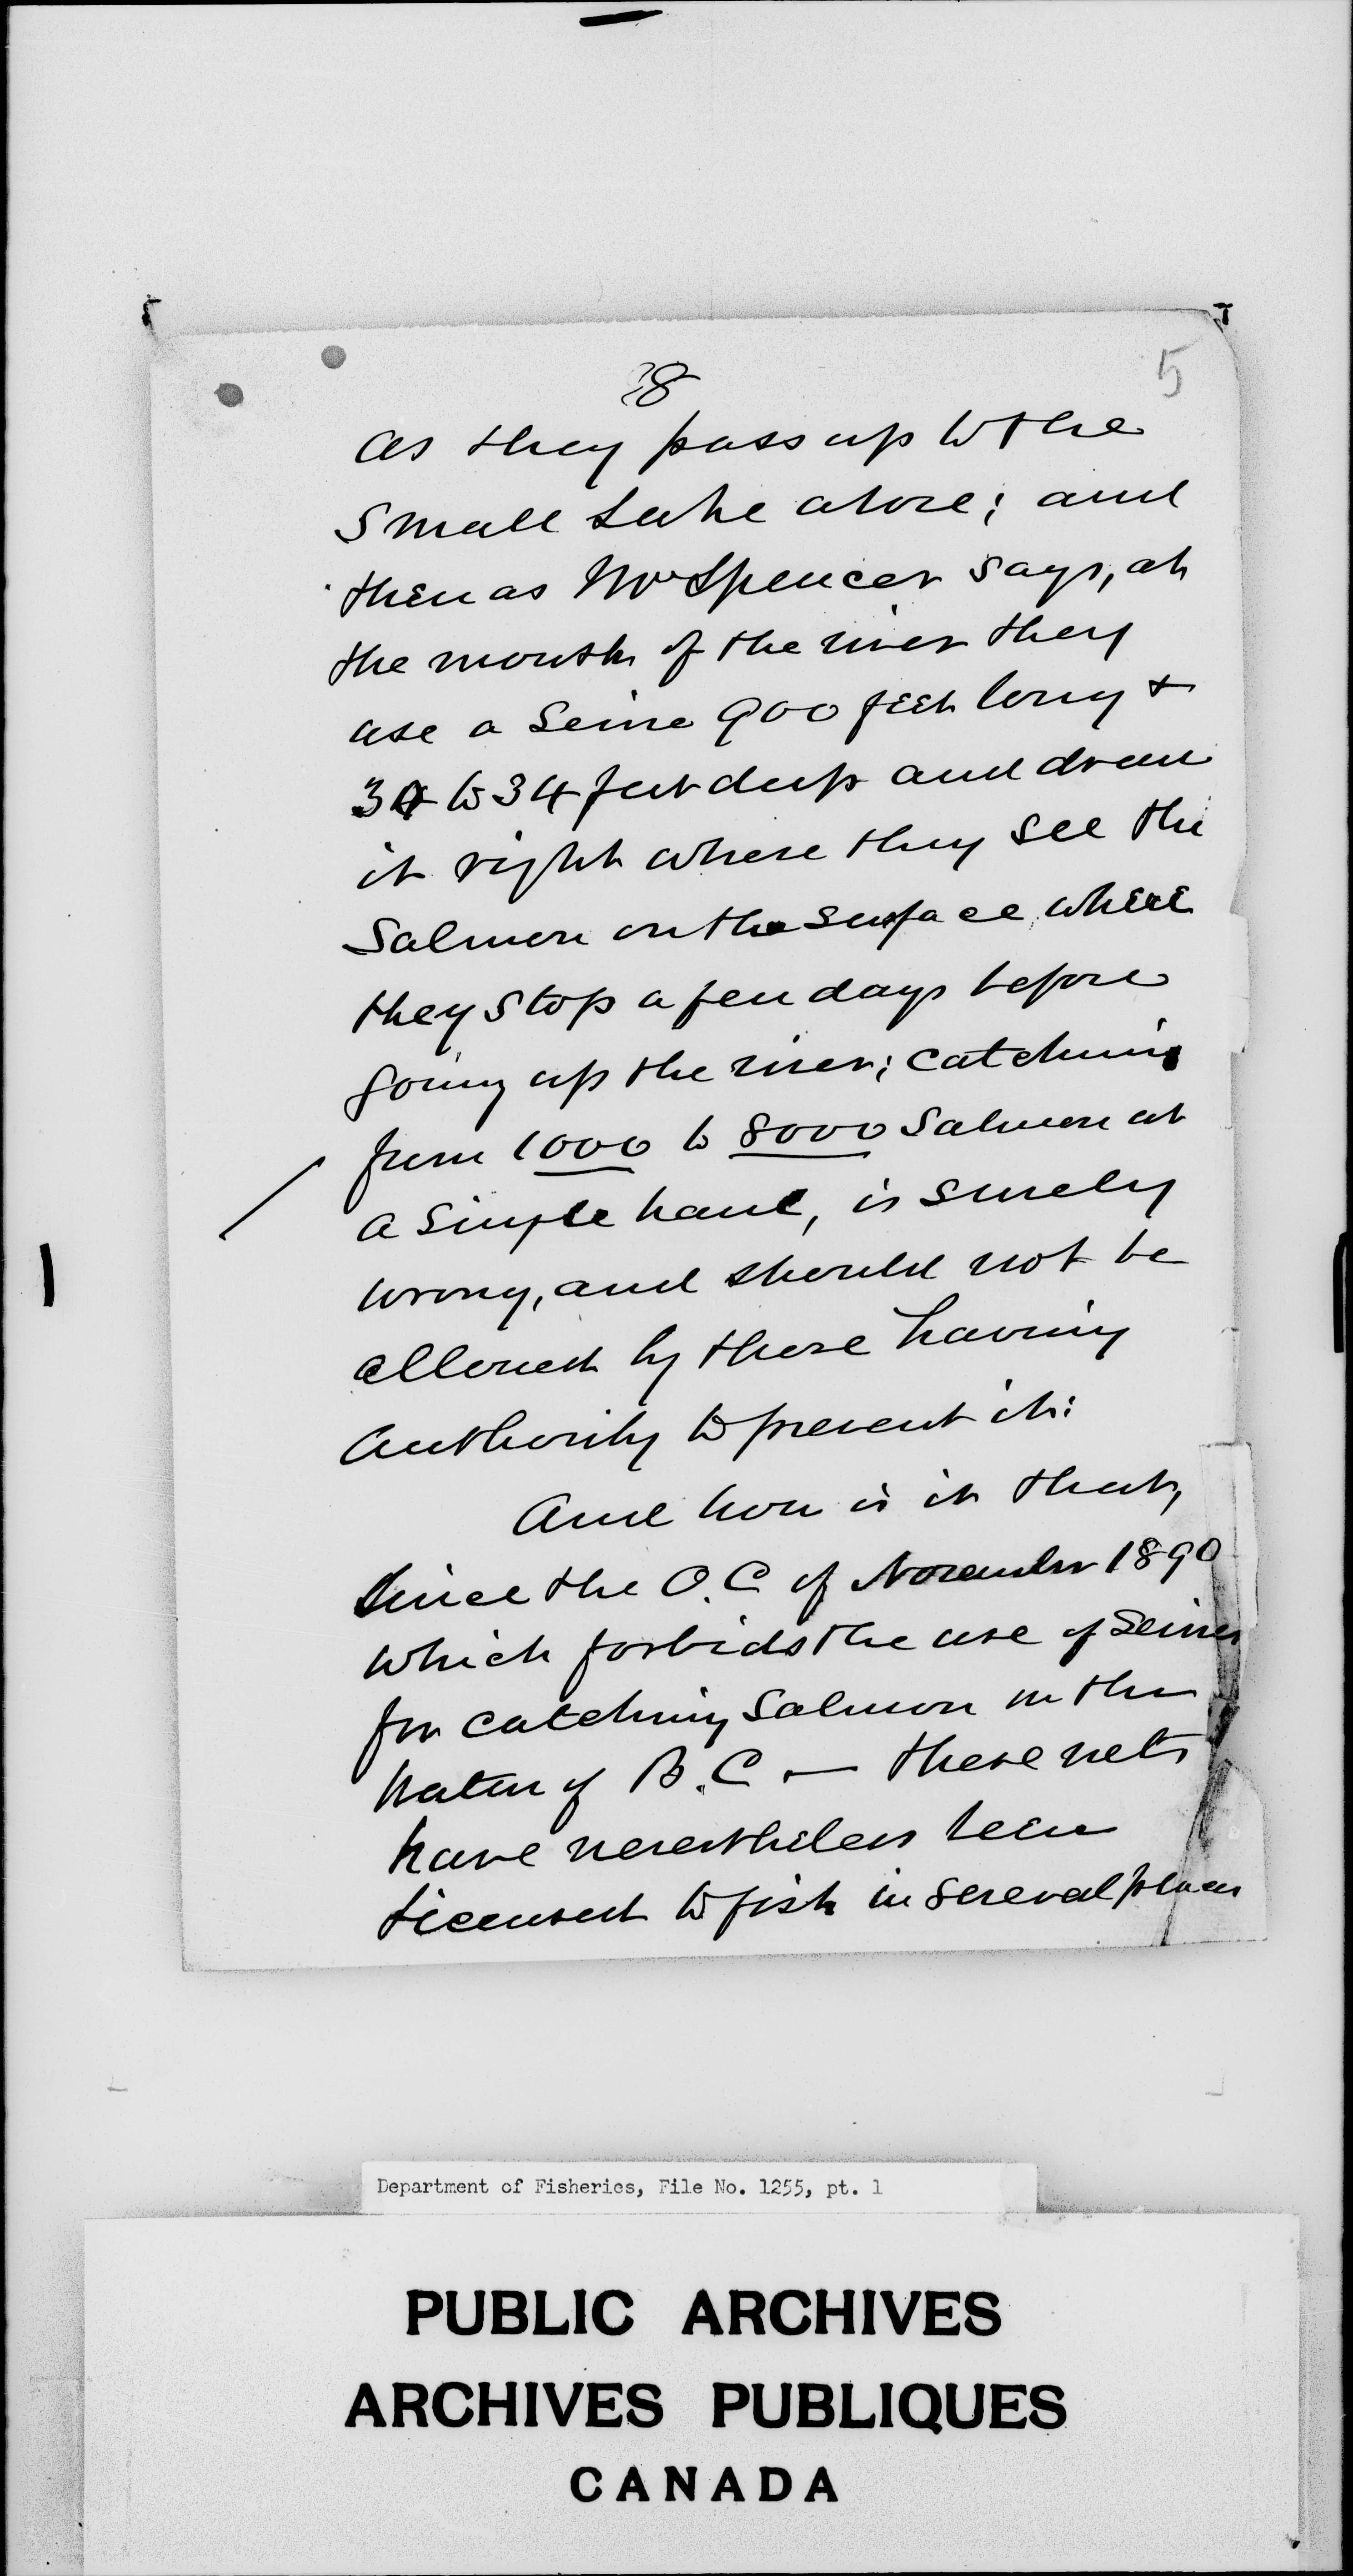 8
5
as they pass up to the
Small Lake above; and
then as Mr Spencer says, at
the mouth of the river they
use a Seine 900 feet long &
30 to 34 feet deep and draw
it right where they see the
Salmon on the surface, where
they stop a few days before
going up the river; catching
from 1000 to 8000 Salmon at
a single haul, is surely
wrong, and should not be
allowed by those having
authority to prevent it:
And how is it that,
Since the O.C of November 1890
which forbids the use of Seines
for catching Salmon in the
water of B.C — these nets
have nevertheless been
licensed to fish in several places
Department of Fisheries, File No. 1255, pt. 1
PUBLIC ARCHIVES
ARCHIVES PUBLIQUES
CANADA